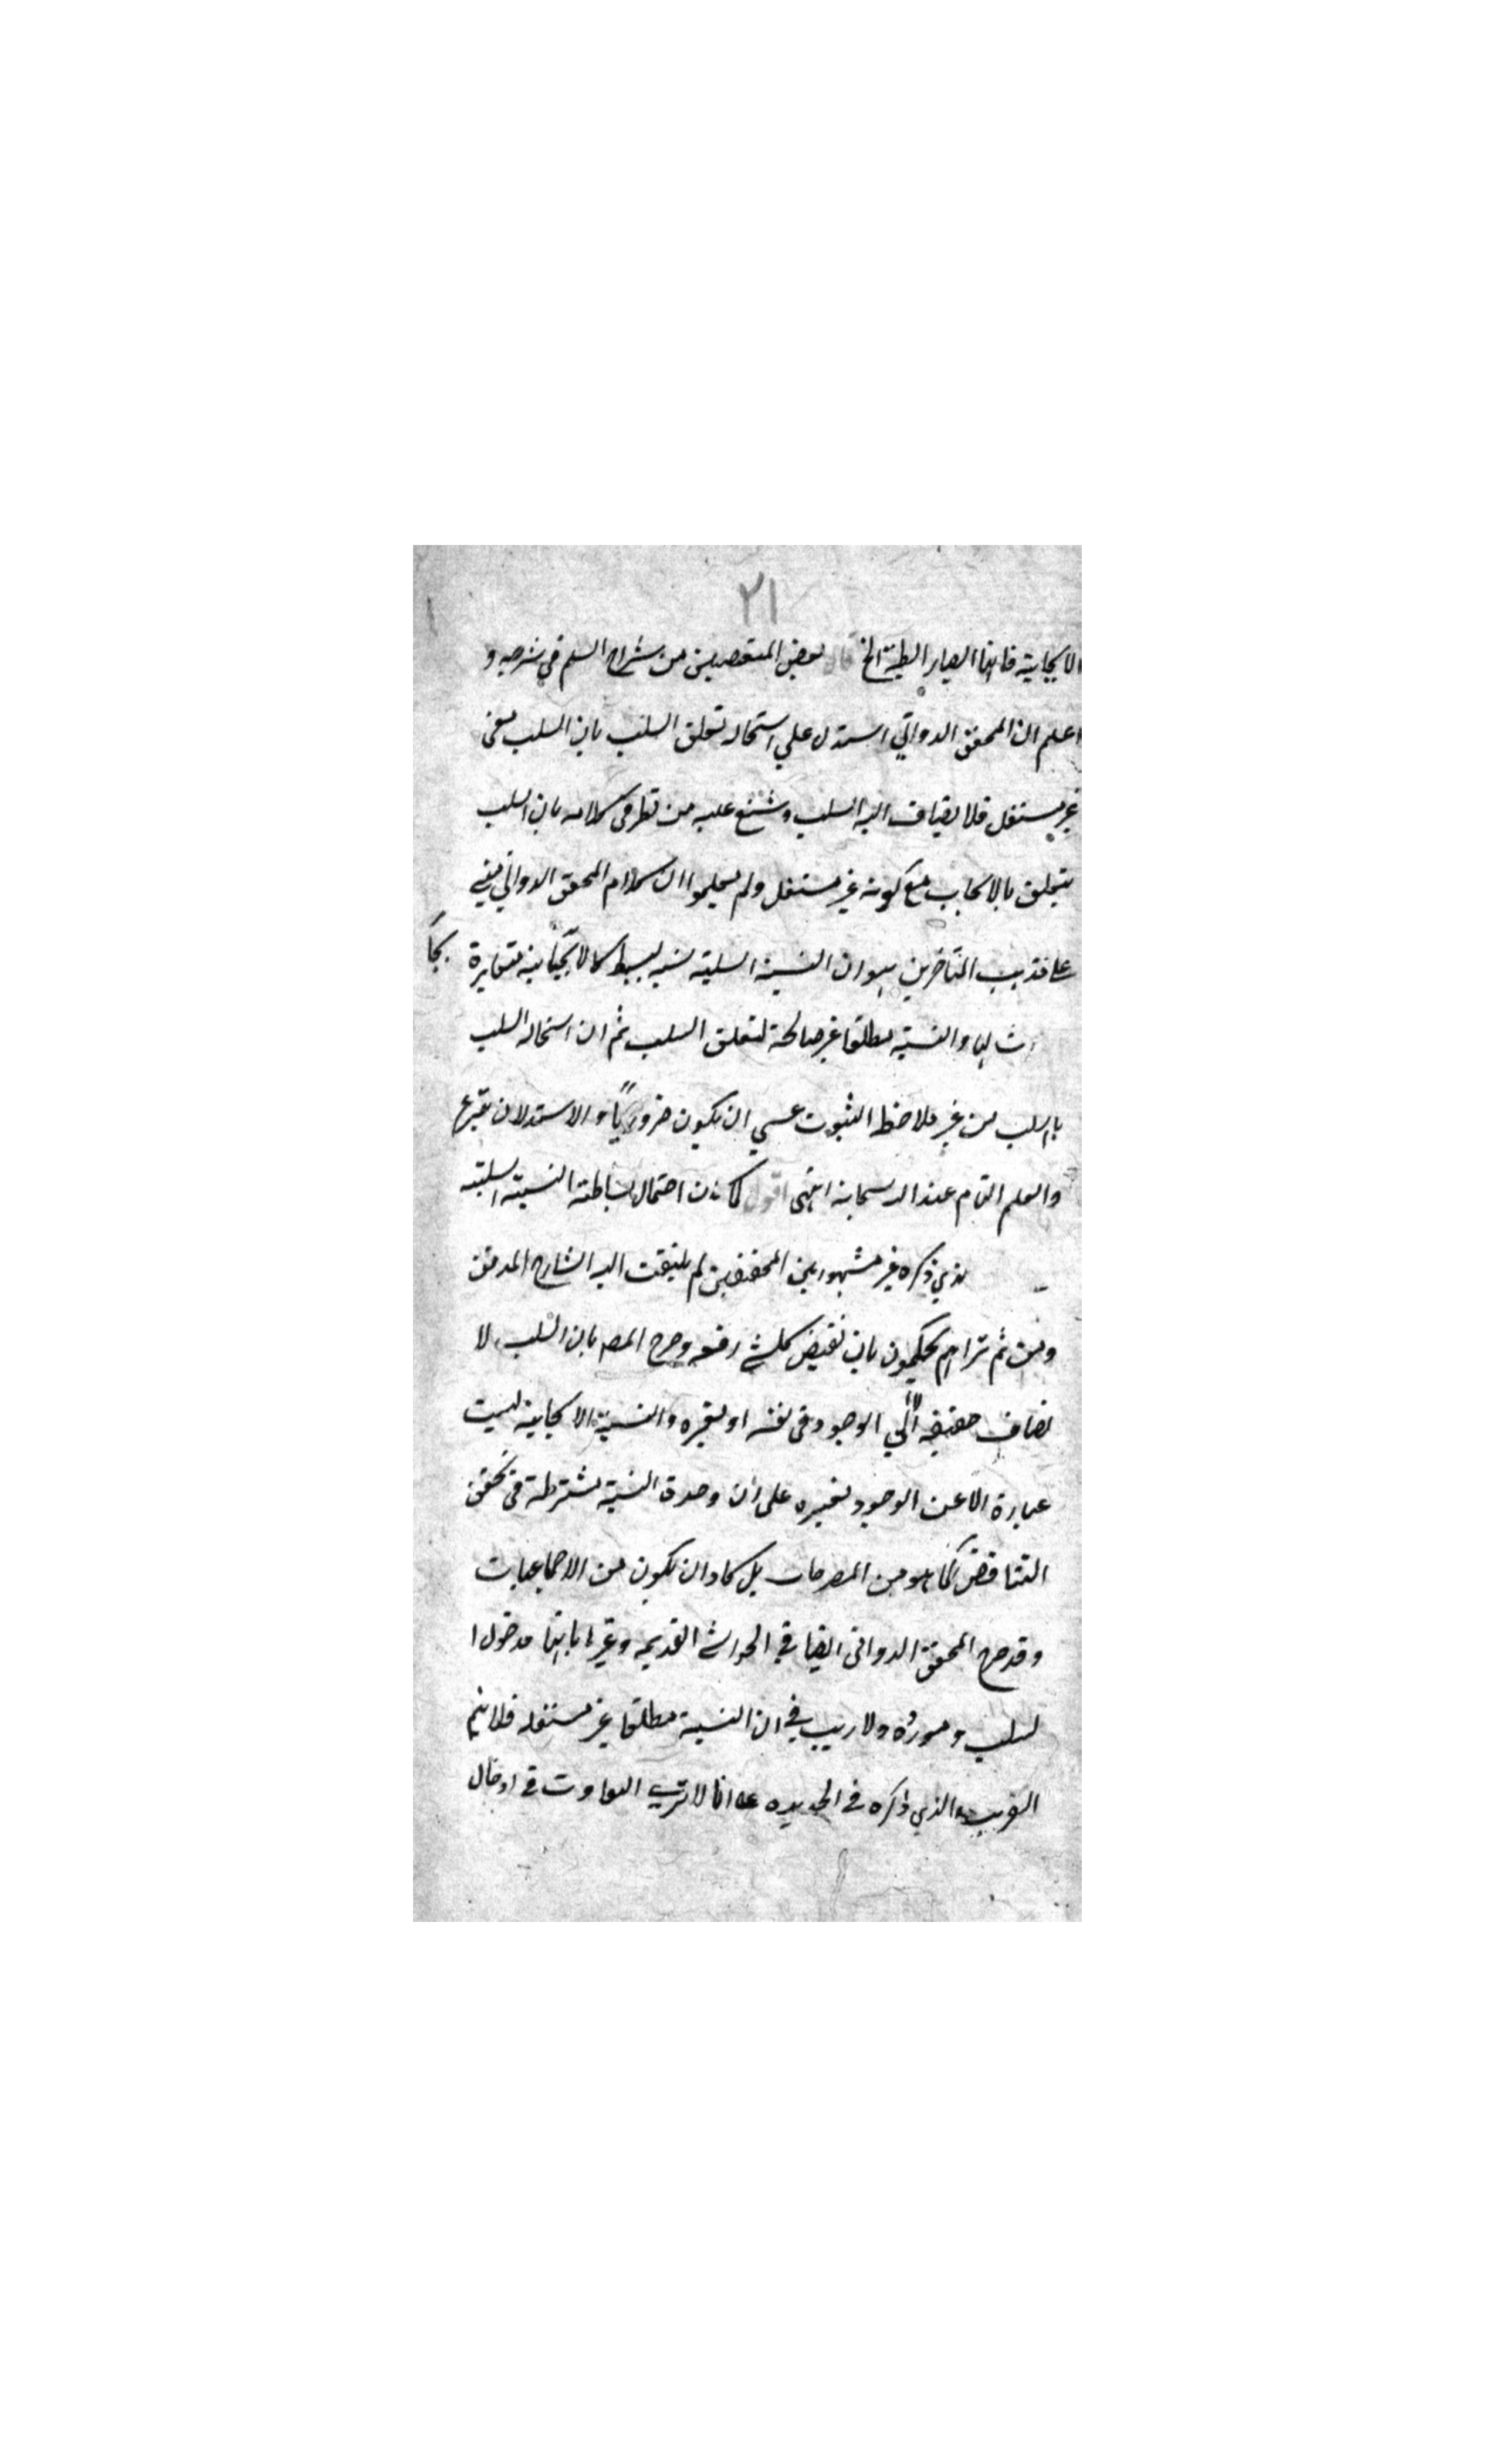 ٢١
الايجابية فانها ايضا رابطية الخ قال بعض المتعصبين من شراح السلم في شرحه و
اعلم ان المحقق الدواني استدل علي استحالة تعلق السلب بان السلب معنى
غير مستقل فلا يضاف اليه السلب وشنع عليه من نظر في كلامه بان السلب
يتعلق بالايجاب مع كونه غير مستقل ولم يعلموا ان كلام المحقق الدواني مبني
على مذهب المتاخرين هو ان النسبة السلبية نسبة بسيطة كالايجابية مغايرة
لها والنسبة مطلقا غير صالحة لتعلق السلب ثم ان استحالة السلب
بالسلب من غير ملاحظة الثبوت عسي ان يكون ضروريا والاستدلال
والعلم التام عند الله سبحانه انتهى اقول لما كان احتمال بساطة النسبة السلبية
الذي ذكره غير مشهور بين المحققين لم يلتفت اليه الشارح المدقق
ومن ثم تراهم يحكمون بان نقيض كل شئ رفعه وصرح المصـ بان السلب لا
يضاف حقيقة الا الي الوجود في نفسه او لغيره والنسبة الايجابية ليست
عبارة الا عن الوجود لغيره على ان وحدة النسبة مشترطة في تحقق
التناقض كما هو من المصرحات بل كاد ان يكون من الاجماعيات
وقد صرح المحقق الدواني ايضا في الحواشي القديمة وغيرها بانها مدخول ا
لسلب ومورده ولا ريب في ان النسبة مطلقا غير مستقلة فلا يتم
التقريب والذي ذكره في الجديدة انا لا نرى التفاوت في ادخال